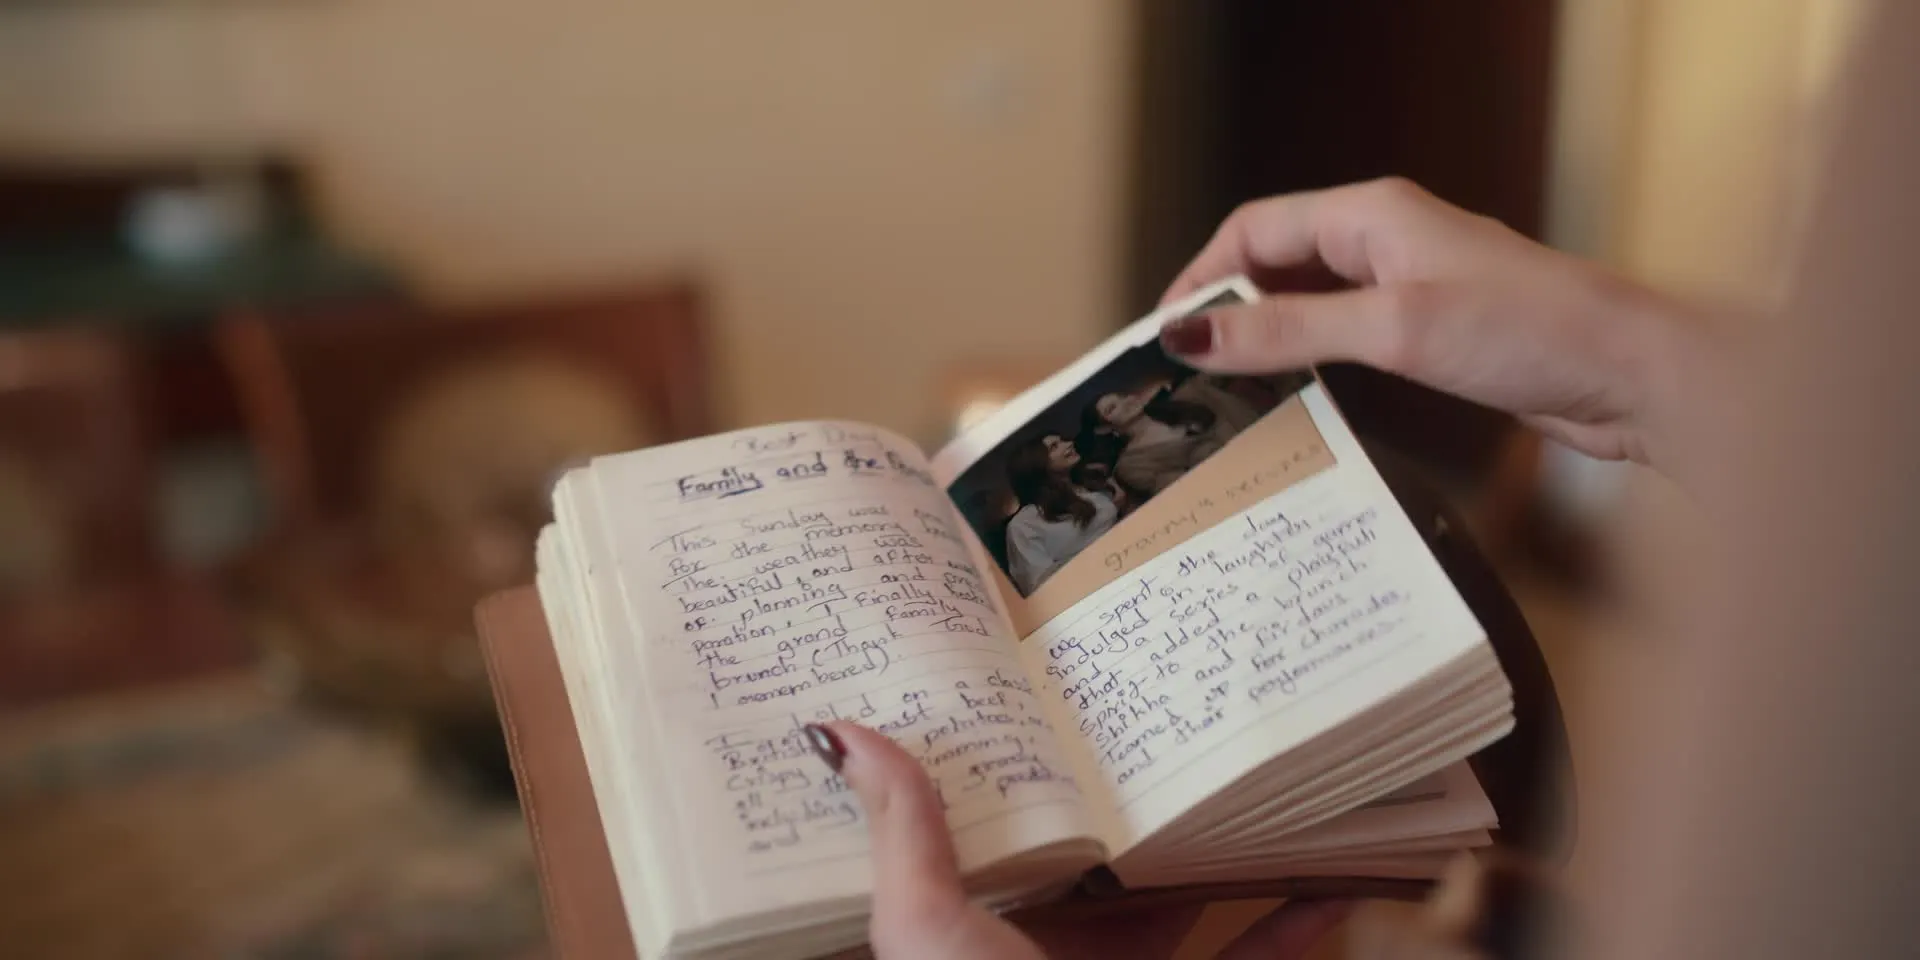 Best Day
Family and the
This Sunday was
for the memory
The weather was
beautiful, and after
of planning and
paration, I finally
the grand family
brunch (Thank God
I remembered).
I on a
British roast beef,
Crispy potatoes,
all the
including
and
granny's recipes
We spent the day
indulged in laughter
and a series of games
that added a playfull
spirit to the brunch
Shikha and Firdaus
Teamed up for charades,
and their performances.